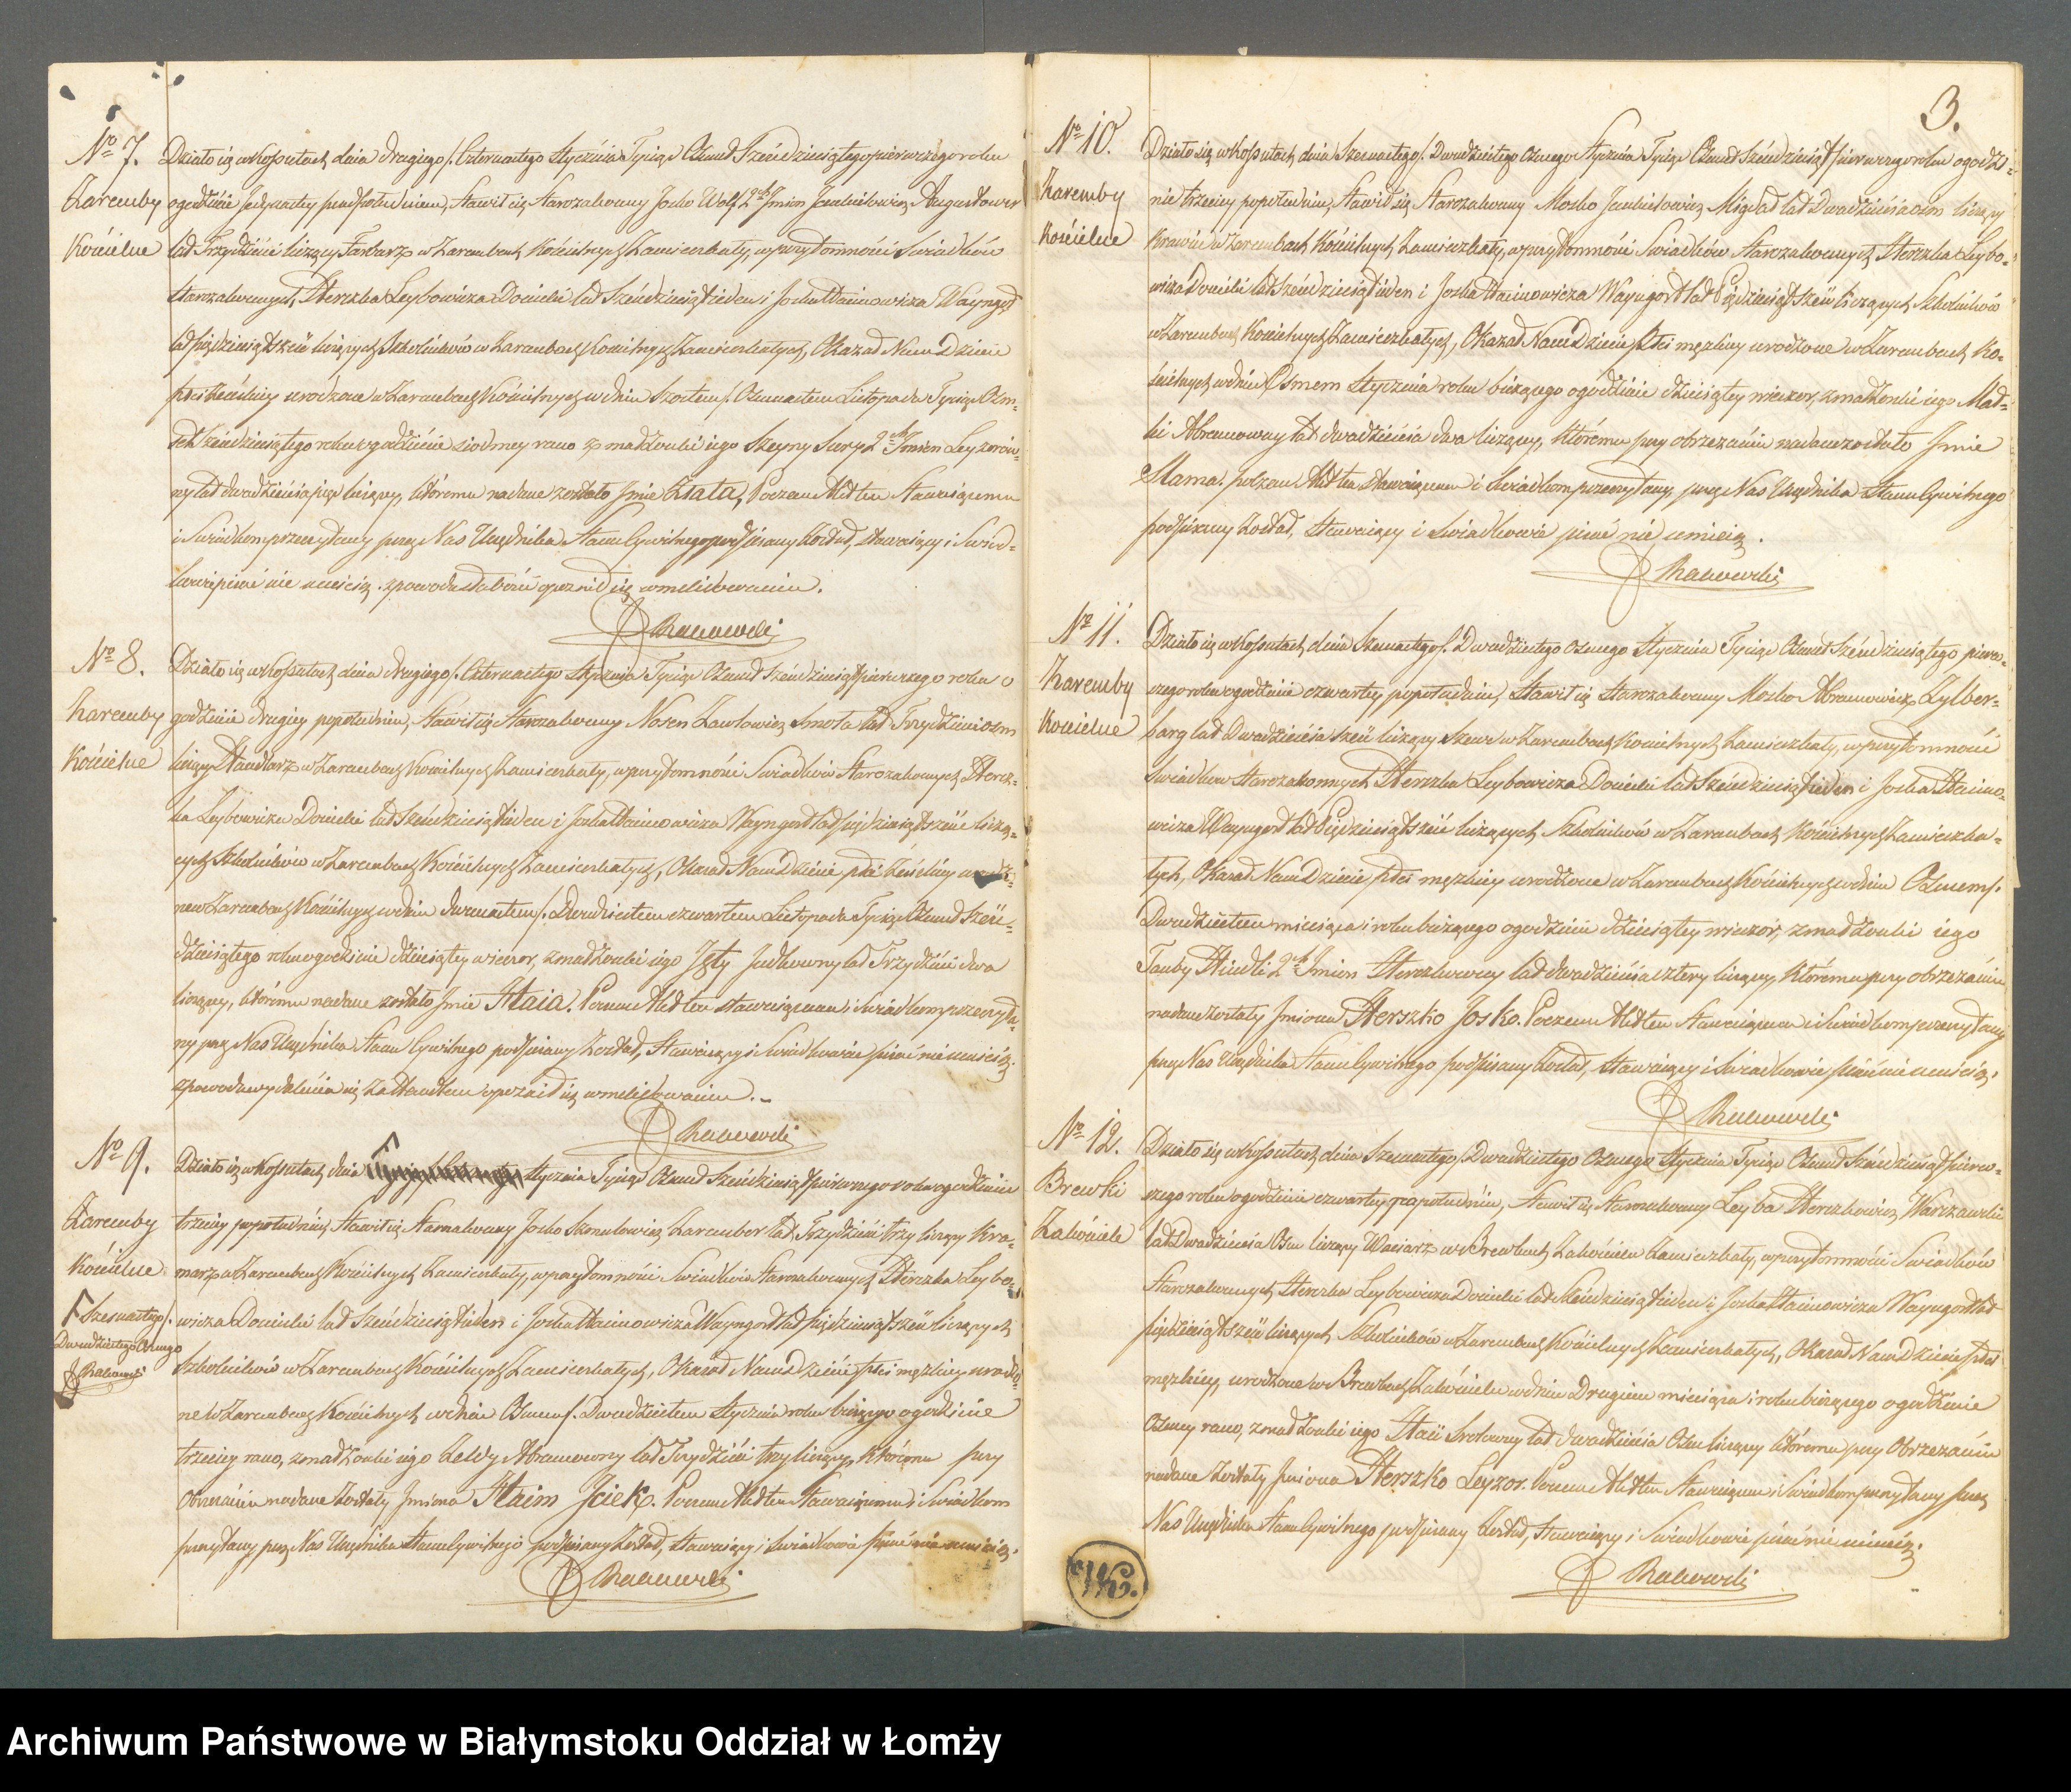 № 7.
Zaremby
Kościelne
Działo się w Kossutach dnia drugiego /. Czternastego Stycznia Tysiąc Ośmset Sześćdziesiątego pierwszego roku
o godzinie Jedynastey przed południem, Stawił się Starozakonny Josko Wolf 2ch Imion Jankielowicz Augustower
lat Trzydzieści liczący Farbarz w Zarembach Kościelnych Zamieszkały, w przytomności Swiadków
Starozakonnych, Herszka Leybowicza Docielki lat Sześćdziesiąt ieden i Joska Haimowicza Wayngort
lat pięćdziesiąt sześć liczących Szkolników w Zarembach Kościelnych Zamieszkałych, Okazał Nam Dziecie
płci żeńskiey urodzone w Zarembach Kościelnych w dniu Szostem /. Ośmnastem Listopada Tysiąc Ośm-
set Sześćdziesiątego roku o godzinie siodmey rano z małżonki iego Szeyny Sury 2ch Imion Leyzorow-
ny lat dwadzieścia pięć liczącey, któremu nadane zostało Imie Złata, Poczem Akt ten Stawaiącemu
i Swiadkom przeczytany przez Nas Urzędnika Stanu Cywilnego podpisany Został, stawaiący i Swiad-
kowie pisać nie umieią. z powodu słabości opoznił się w meldowaniu.
№ 8.
Zaremby
Kościelne
Działo się w Kossutach dnia drugiego /. Czternastego Stycznia Tysiąc Ośmset Sześćdziesiąt pierwszego roku o
godzinie drugiey popołudniu, Stawił się Starozakonny Nosen Zawłowicz Smoła lat Trzydzieści ośm
liczący Handlarz w Zarembach Kościelnych Zamieszkały, w przytomności Swiadków Starozakonnych Hersz-
ka Leybowicza Docielki lat Sześćdziesiąt ieden i Joska Haimowicza Wayngort lat pięćdziesiąt sześć liczą-
cych Szkolników w Zarembach Kościelnych Zamieszkałych, Okazał Nam Dziecie płci żeńskiey urodzo-
ne w Zarembach Kościelnych w dniu dwunastem /. Dwudziestem czwartem Listopada Tysiąc Ośmset Sześć-
dziesiątego roku o godzinie dziesiątey wieczor, z małżonki iego Ity Judkowny lat Trzydzieści dwa
liczącey, któremu nadane zostało Imie Haia. Poczem Akt ten stawaiącemu i Swiadkom przeczyta-
ny przez Nas Urzędnika Stanu Cywilnego podpisany Został, Stawaiący i Swiadkowie pisać nie umieią.
z powodu wydalenia się za Handlem opoznił się w meldowaniu.
№ 9.
Zaremby
Kościelne
Szesnastego /.
Dwudziestego Osmego
Działo się w Kossutach dnia Stycznia Tysiąc Ośmset Sześćdziesiąt pierwszego roku o godzinie
trzeciey popołudniu, Stawił się Starozakonny Josko Szmulowicz Zarember lat Trzydzieści trzy liczący Kra-
marz w Zarembach Kościelnych Zamieszkały, w przytomności Swiadków Starozakonnych Herszka Leybo-
wicza Docielki lat Sześćdziesiąt ieden i Joska Haimowicza Wayngort lat pięćdziesiąt sześć liczących
Szkolników w Zarembach Kościelnych Zamieszkałych, Okazał Nam Dziecie płci męzkiey urodzo-
ne w Zarembach Kościelnych w dniu Osmem /. Dwudziestem Stycznia roku bieżącego o godzinie
trzeciey rano, z małżonki iego Zeldy Abramowny lat Trzydzieści trzy liczącey, któremu przy
Obrzezaniu nadane zostały Imiona Haim Iciek. Poczem Akt ten Stawaiącemu i Swiadkom
przeczytany przez Nas Urzędnika Stanu Cywilnego podpisany Został, Stawaiący i Swiadkowie pisać nie umieią.
3.
№ 10.
Zaremby
Kościelne
Działo się w Kossutach dnia Szesnastego /. Dwudziestego Osmego Stycznia Tysiąc Ośmset Sześćdziesiąt pierwszego roku o godzi-
nie trzeciey popołudniu, Stawił się Starozakonny Mosko Jankielowicz Migdał lat Dwadzieścia ośm liczący
Krawiec w Zarembach Kościelnych Zamieszkały, w przytomności Swiadków Starozakonnych Herszka Leybo-
wicza Docielki lat Sześćdziesiąt ieden i Joska Haimowicza Wayngort lat Pięćdziesiąt sześć liczących Szkolników
w Zarembach Kościelnych Zamieszkałych, Okazał Nam Dziecie Płci męzkiey urodzone w Zarembach Ko-
ścielnych w dniu Osmem Stycznia roku bieżącego o godzinie dziesiątey wieczor, z małżonki iego Mał-
ki Abramowny lat dwadzieścia dwa liczącey, któremu przy obrzezaniu nadane zostało Imie
Mama. poczem Akt ten Stawaiącemu i Swiadkom przeczytany, przez Nas Urzędnika Stanu Cywilnego
podpisany Został, Stawaiący i Swiadkowie pisać nie umieią.
№ 11.
Zaremby
Kościelne
Działo się w Kossutach dnia Szesnastego /. Dwudziestego Osmego Stycznia Tysiąc Ośmset Sześćdziesiątego pierw-
szego roku o godzinie czwartey popołudniu, Stawił się Starozakonny Mosko Abramowicz Zylber-
barg lat Dwadzieścia sześć liczący Szewc w Zarembach Kościelnych Zamieszkały, w przytomności
Swiadków Starozakonnych Herszka Leybowicza Docielki lat Sześćdziesiąt ieden i Joska Haimo-
wicza Wayngort lat Pięćdziesiąt sześć liczących Szkolników w Zarembach Kościelnych Zamieszka-
łych, Okazał Nam Dziecie płci męzkiey urodzone w Zarembach Kościelnych w dniu Osmem /.
Dwudziestem miesiąca i roku bieżącego o godzinie dziesiątey wieczor, z małżonki iego
Tauby Hindli 2ch Imion Herszkowny lat dwadzieścia cztery liczącey, któremu przy obrzezaniu
nadane zostały Imiona Herszko Josko. Poczem Akt ten Stawaiącemu i Swiadkom przeczytany
przez Nas Urzędnika Stanu Cywilnego podpisany Został, Stawaiący i Swiadkowie pisać nie umieią.
№ 12.
Brewki
Zakościele
Działo się w Kossutach dnia Szesnastego /. Dwudziestego Osmego Stycznia Tysiąc Ośmset Sześćdziesiąt pierw-
szego roku o godzinie czwartey popołudniu, Stawił się Starozakonny Leyba Herszkowicz Warszawski
lat Dwadzieścia Osm liczący w Brewkach Zakościelu Zamieszkały, w przytomności Swiadków
Starozakonnych Herszka Leybowicza Docielki lat Sześćdziesiąt ieden i Joska Haimowicza Wayngort lat
pięćdziesiąt sześć liczących Szkolników w Zarembach Kościelnych Zamieszkałych, Okazał Nam Dziecie płci
męzkiey, urodzone w Brewkach Zakościelu w dniu Drugiem miesiąca i roku bieżącego o godzinie
Osmey rano, z małżonki iego Srolowny lat dwadzieścia Osm liczącey któremu przy Obrzezaniu
nadane Zostały Imiona Herszko Leyzor. Poczem Akt ten Stawaiącemu i Swiadkom przeczytany przez
Nas Urzędnika Stanu Cywilnego podpisany Został, Stawaiący i Swiadkowie pisać nie umieią.
Archiwum Państwowe w Białymstoku Oddział w Łomży